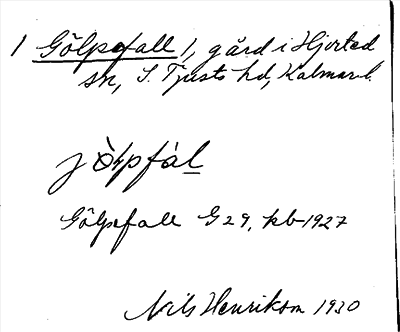 1 Gölpefall 1, gård i Hjorted
sn, S. Tjusts hd, Kalmar l.
jölpfal
Gölpefall G29, kb 1927
Nils Henrikson 1930